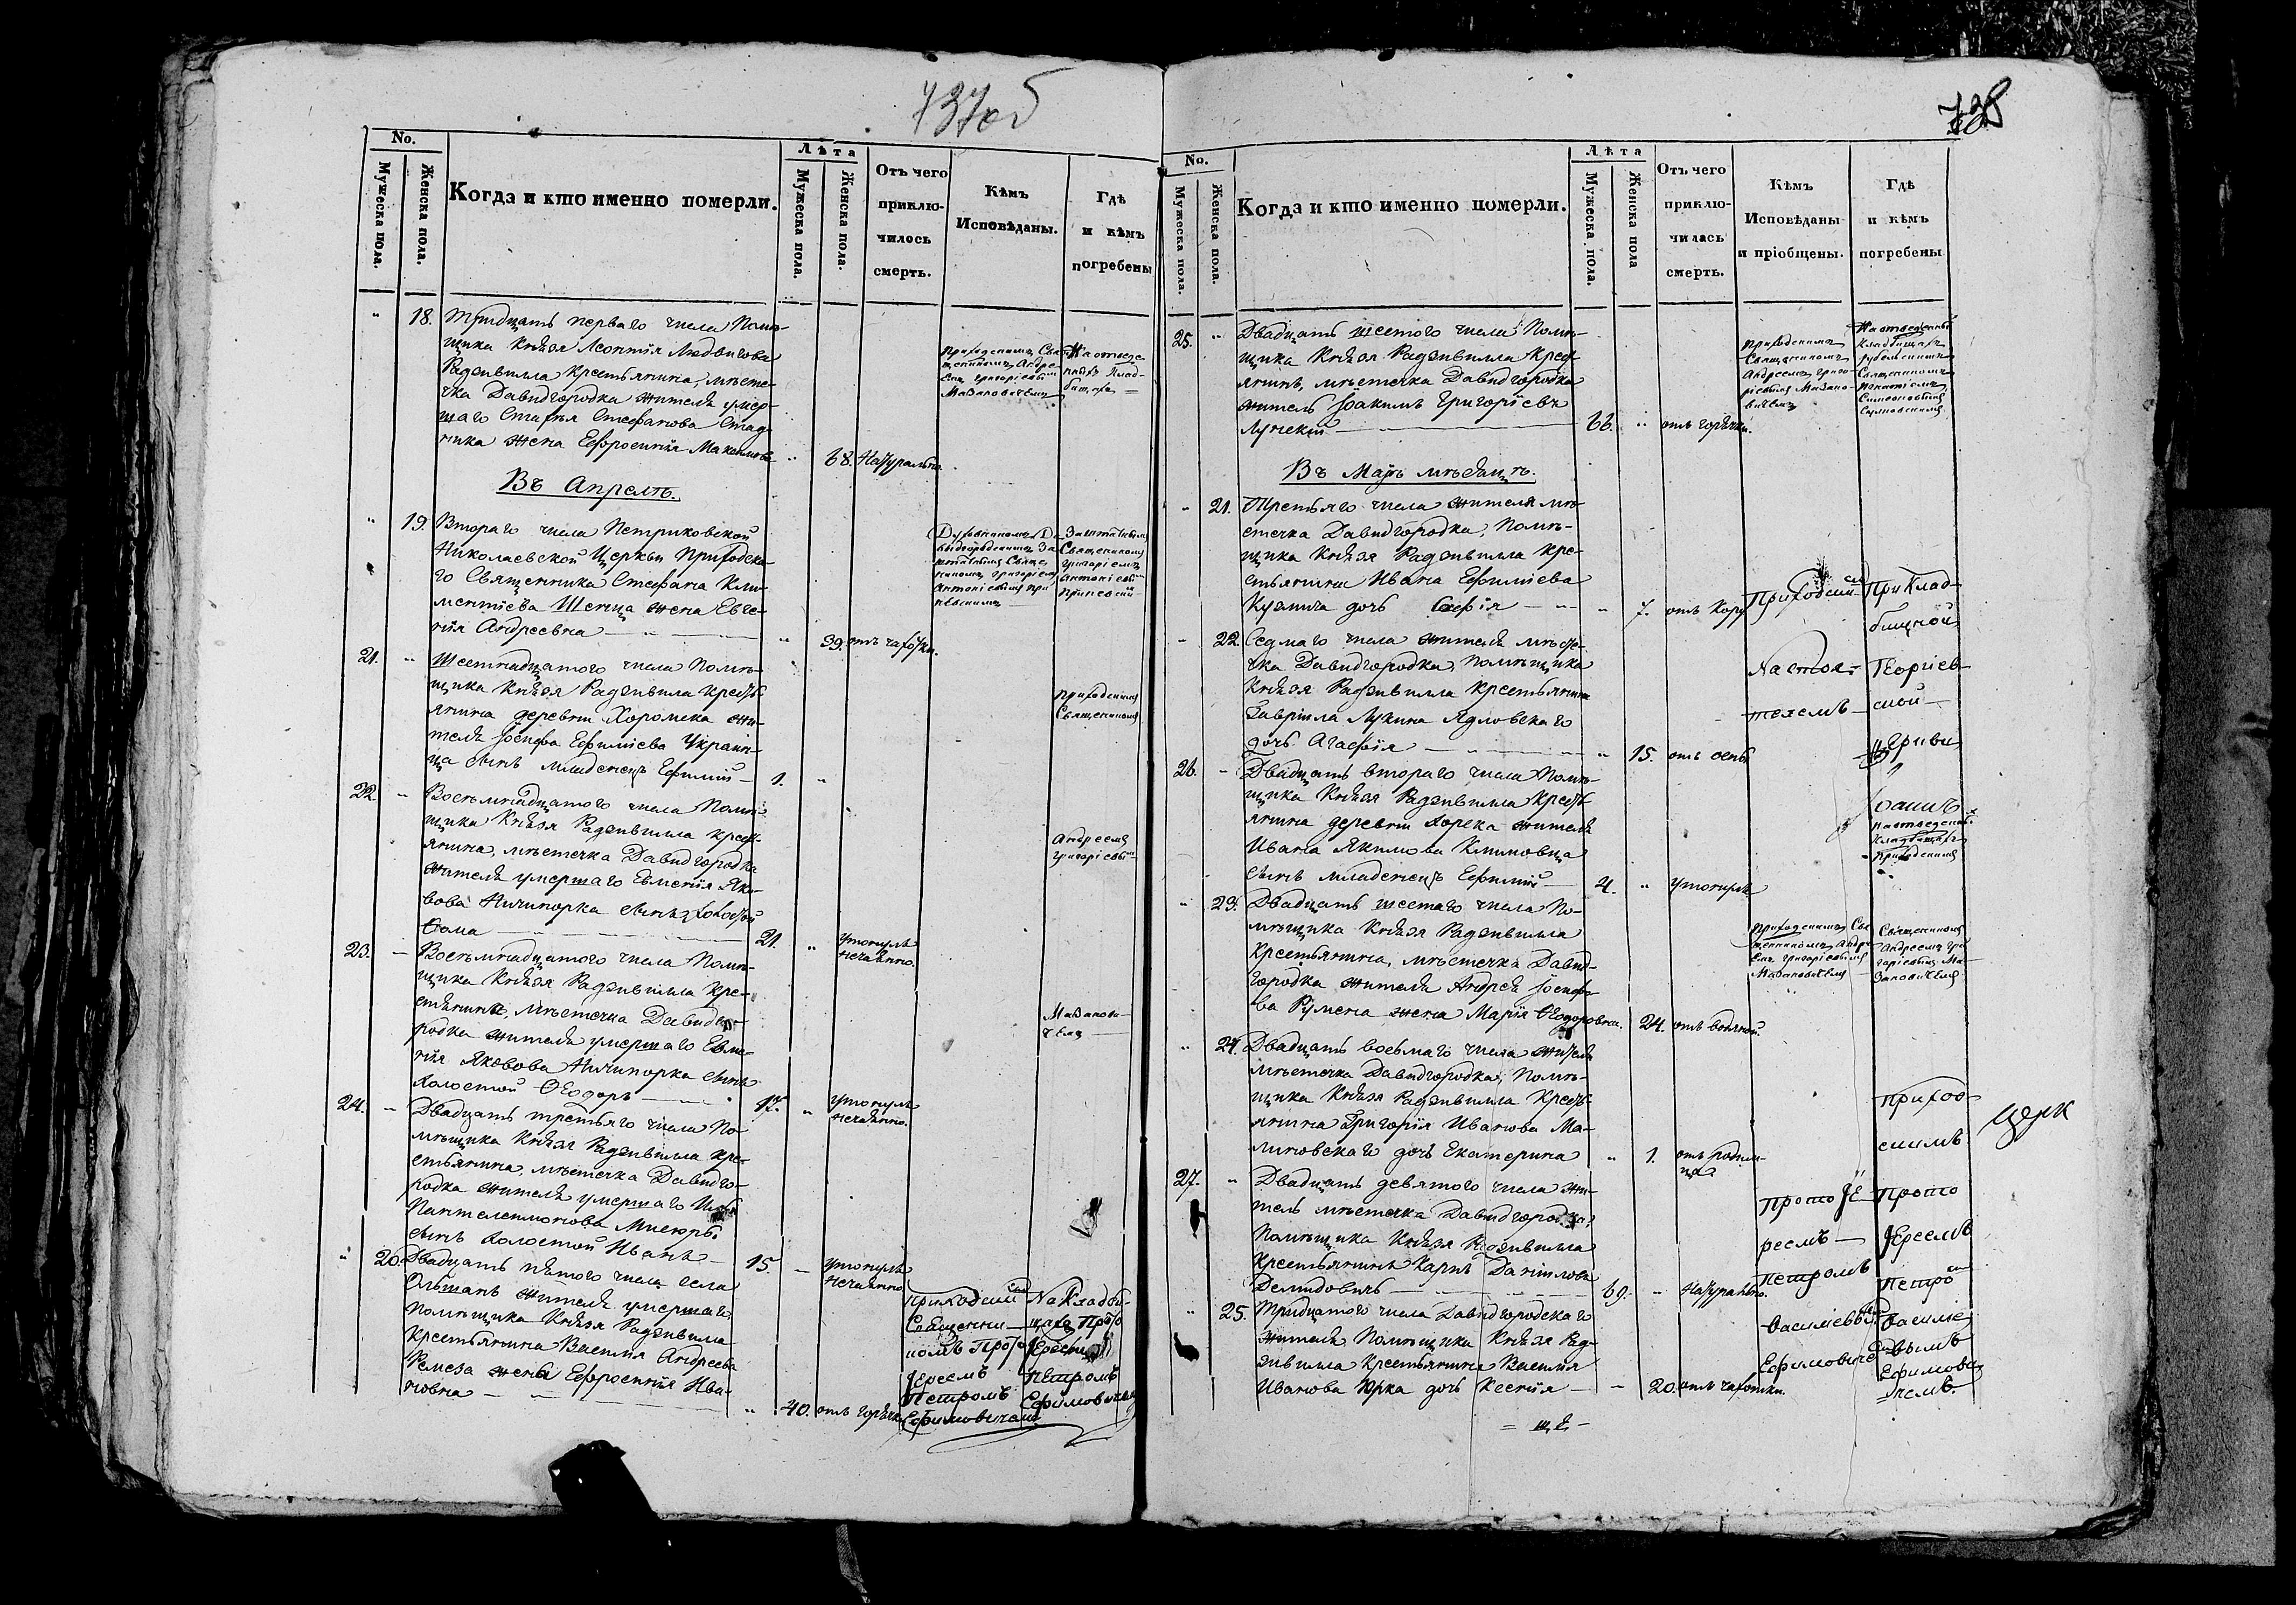 737об
No.
Мужеска пола.
Женска пола.
Когда и кто именно померли.
Лѣта
Мужеска пола.
Женска пола.
Отъ чего
приклю-
чилось
смерть.
Кѣмъ
Исповѣданы.
Гдѣ
и кѣмъ
погребены
" 18. Тридцать перваго числа Помѣ-
щика Князя Леонтія Людвигова
Радзивилла крестьянина, мѣсте-
чка Давидгородка жителя умер-
шаго Стефанова
жена Ефросинія " 68. Натурально.
Приходскимъ Свя-
щенникомъ Андре-
емъ Григоріевымъ
Мазановичемъ
На отведе-
номъ Клад-
бищѣ
Въ Апрелѣ.
" 19. Втораго числа Петриковской
Николаевской Церкви Приходска-
го Священника Стефана Кли-
ментіева Шеница жена Евге-
нія Андреевна " 39. отъ чахотки.
Духовникомъ Да-
видгородскимъ За-
штатнымъ Свяще-
никомъ Григоріемъ
Антоніевымъ
Заштатнымъ
Священникомъ
Григоріемъ
Антоніевымъ
21. " Шестнадцатого числа Помѣ-
щика Князя Радзивила крестья-
янина деревни Хоромска жи-
теля Іосифа Ефиміева Украин-
ца сынъ младенецъ Ефимій 1. "
Приходскимъ
Священникомъ
22. " Восемнадцатого числа Помѣ-
щика Князя Радзивилла крестья-
янина, мѣстечка Давидгородка
жителя умершаго Евменія Яко-
вова Ничипорка сынъ холостой
Фома 21. " утонулъ
нечаянно.
Андреемъ
Григоріевым
23. " Восемнадцатого числа Помѣ-
щика Князя Радзивилла кре-
стьянина, мѣстечка Давидго-
родка жителя умершаго Евме-
нія Яковова Ничипорка сынъ
холостой Ѳеодоръ 17. " утонулъ
нечаянно.
Мазанови-
чемъ
24. " Двадцать третьяго числа По-
мѣщика Князя Радзивилла кре-
стьянина, мѣстечка Давидго-
родка жителя умершаго
Пантелеимонова
сынъ холостой Иванъ 15. " утонулъ
нечаянно
" 20. Двадцать пятого числа села
Ольшанъ жителя умершаго
помѣщика Князя Радзивила
крестьянина Василія Андреева
Ремеза жена Ефросинія Ива-
новна " 40. отъ горячки
Приходским
Священни-
комъ Прото
Іереемъ
Петромъ
Ефимовичемъ
На Кладби-
щахъ Прото
Іереемъ
Петромъ
Ефимовичем
738
No.
Мужеска пола.
Женска пола.
Когда и кто именно померли.
Лѣта
Мужеска пола.
Женска пола
Отъ чего
приклю-
чилась
смерть.
Кѣмъ
Исповѣданы
и пріобщены.
Гдѣ
и кѣмъ
погребены
25. " Двадцать шестого числа Помѣ-
щика Князя Радзивилла крест
янинъ, мѣстечка Давидгородка
житель Іоакимъ Григоріевъ
Лунскій 66. " отъ горячки.
Приходскимъ
Священникомъ
Андреемъ Григо-
ріевымъ Мазано-
вичемъ
На отведенныхъ
Кладбищахъ
рубельскимъ
Священникомъ
Игнатіемъ
Симеоновымъ
Въ Маѣ мѣсяцѣ.
" 21. Третьяго числа жителя мѣ-
стечка Давидгородка, Помѣ-
щика Князя Радзивилла кре-
стьянина Ивана Ефиміева
Кузмича дочь Софія " 7. отъ кору
Приходским
При Клад-
бищной
" 22. Седмаго числа жителя мѣсте-
чка Давидгородка, помѣщика
Князя Радзивилла крестьянина
Гавріила Лукина Ядловскаго
дочь Агафія " 15. отъ оспы
Настоя-
телемъ
Георгіев-
ской
церкви
26. " Двадцать втораго числа Помѣ-
щика Князя Радзивилла крест-
янина деревни Хорска жителя
Ивана Якимова Климовца
сынъ младенецъ Ефимій 4. " утонулъ
на отведенныхъ
Кладбищахъ
Приходскимъ
" 23. Двадцать шестаго числа По-
мѣщика Князя Радзивилла
крестьянина, мѣстечка Давид-
городка жителя Андрея Іосифо-
ва Румена жена Марія Ѳеодоровна. 24. отъ водяной.
Приходскимъ Свя
щенникомъ Андре
емъ Григоріевымъ
Мазановичемъ
Священникомъ
Андреемъ Гри
горіевымъ Ма-
зановичемъ
" 24. Двадцать восьмаго числа жителя
мѣстечка Давидгородка, Помѣ-
щика Князя Радзивилла Кресть-
янина Григорія Иванова Ма-
линовскаго дочь Екатерина " 1. отъ родим-
ца
приход-
скимъ
церк
27. " Двадцать девятого числа жи-
тель мѣстечка Давидгородка,
Помѣщика Князя Радзивилла
Крестьянинъ Карпъ Даніилова
Демидовичъ 69. " Натурально.
Прото Іе-
реемъ
Петромъ
Прото
Іереемъ
Петро
" 25. Тридцатого числа Давидгородскаго
жителя, Помѣщика Князя Рад-
зивилла Крестьянина Василія
Иванова Юрка дочь Ксенія " 20. отъ чахотки.
Василіевым
Ефимовиче
Василіе
вымъ
Ефимови
чемъ.